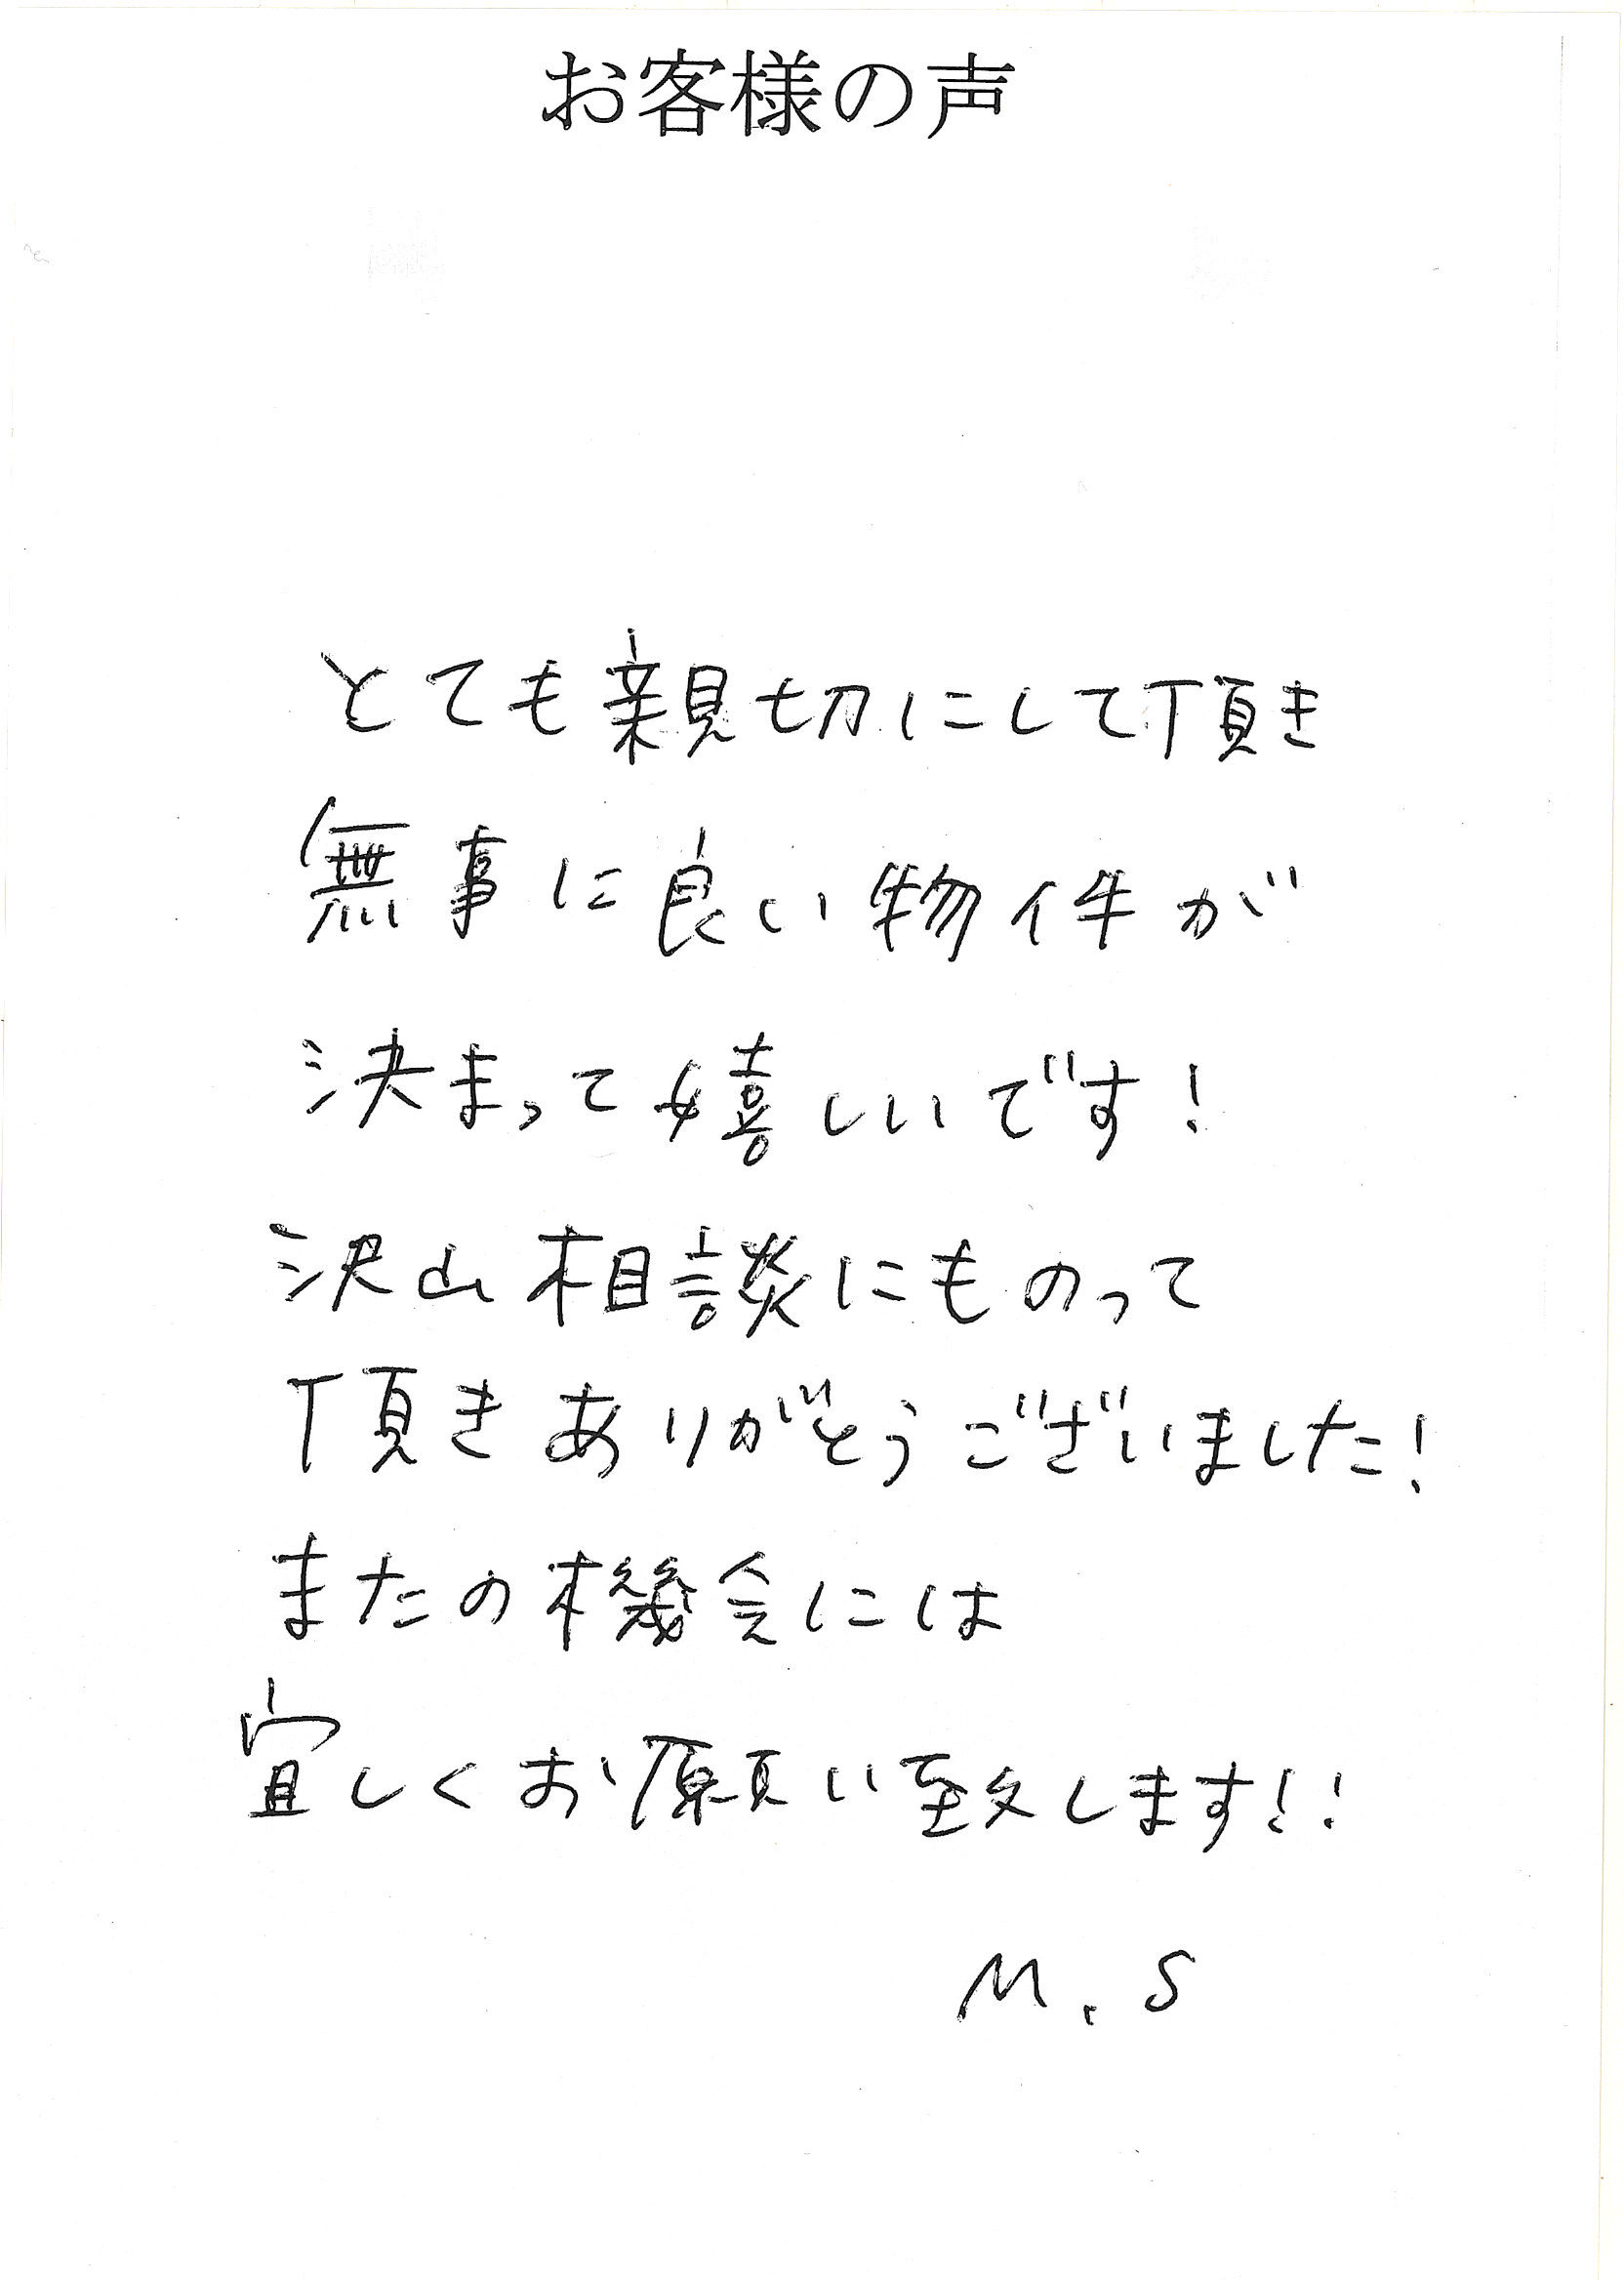 お客様の声
とても親切にして頂き
無事に良い物件が
決まって嬉しいです!
沢山相談にものって
頂きありがとうございました!
またの機会には
宜しくお願い致します!!
M.S